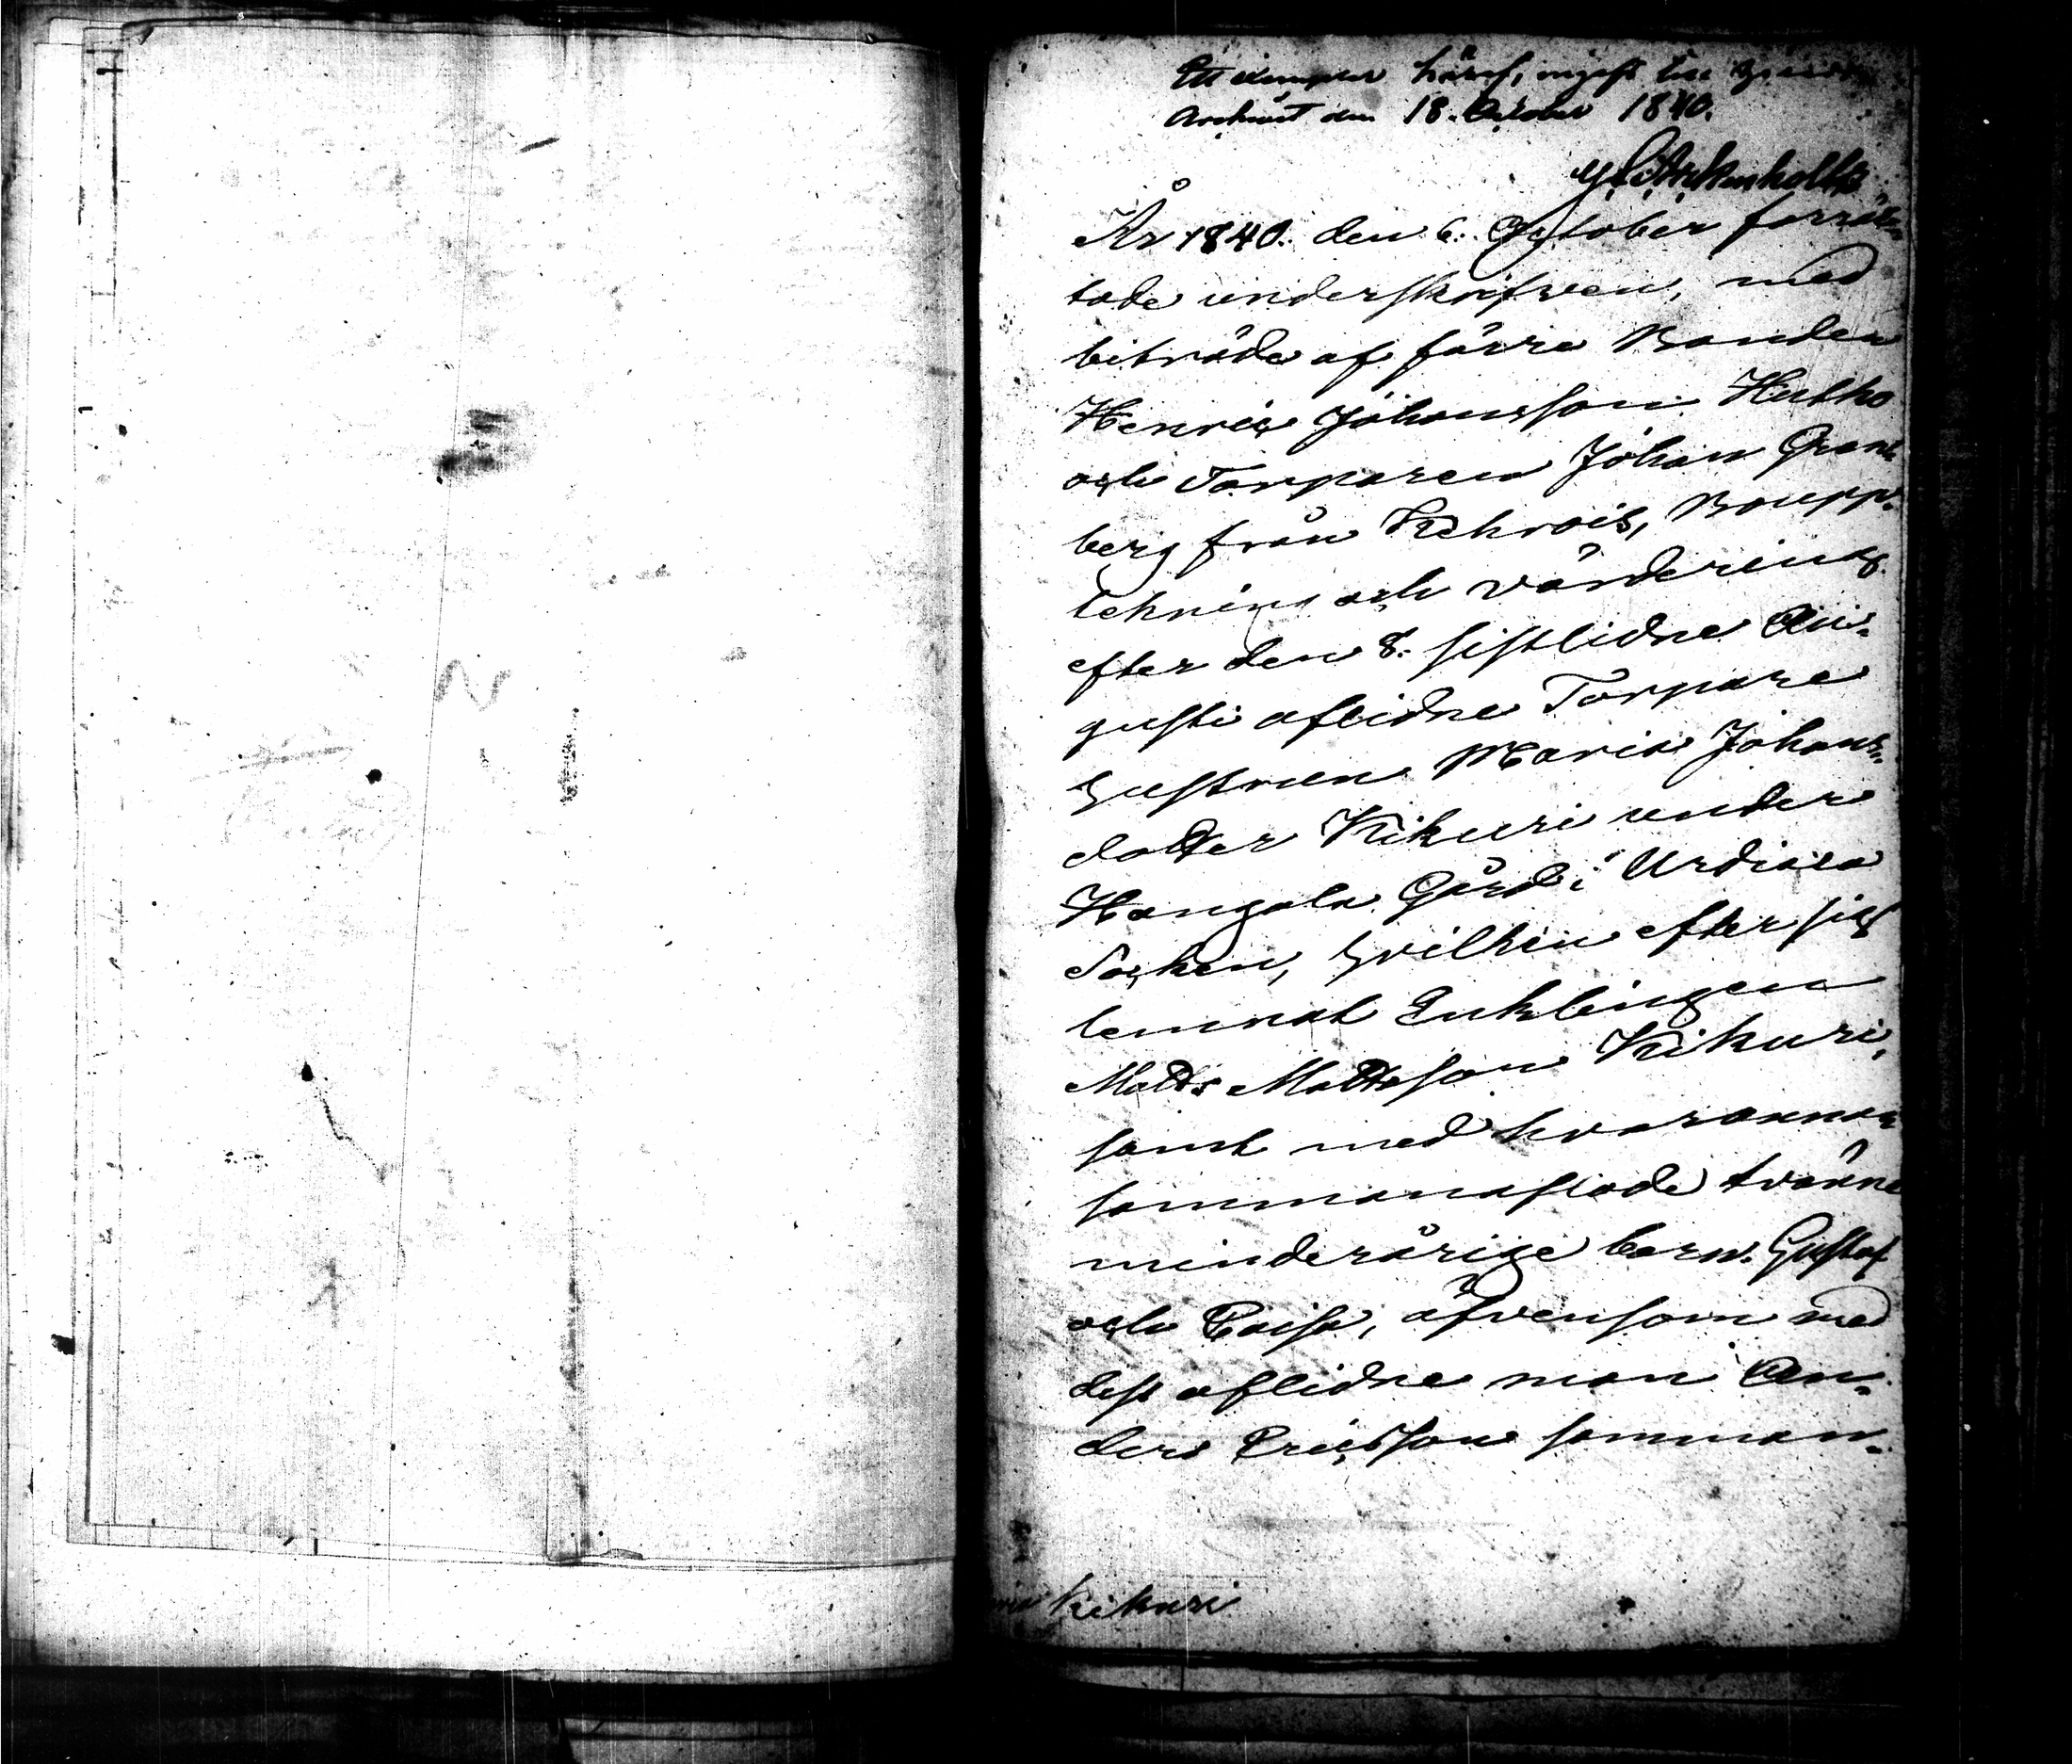 Ett exemplar häraf, ingifit till
Archivet den 18. October 1840.
År 1840. den 6. October förrät-
tade underskrifwen, med
biträde af förre Bonden
Henric Johansson Hutko
och Torparen Johan Gran-
berg från Kehrois, Boupp-
tekning och värdering
efter den 8. sistlidne Au-
gusti aflidne Torpare
hustrun Maria Johans-
dotter Kikuri under
Hongola Gård i Urdiala
Socken, hvilken efter sig
lemnat Enklingen
Matts Mattsson Kikuri,
samt med hvarannan
sammanaflade tvänne
minderårige barn Gustaf
och Caisa, äfvensom med
dess aflidne man An-
ders Ericsson samman-
Kikuri